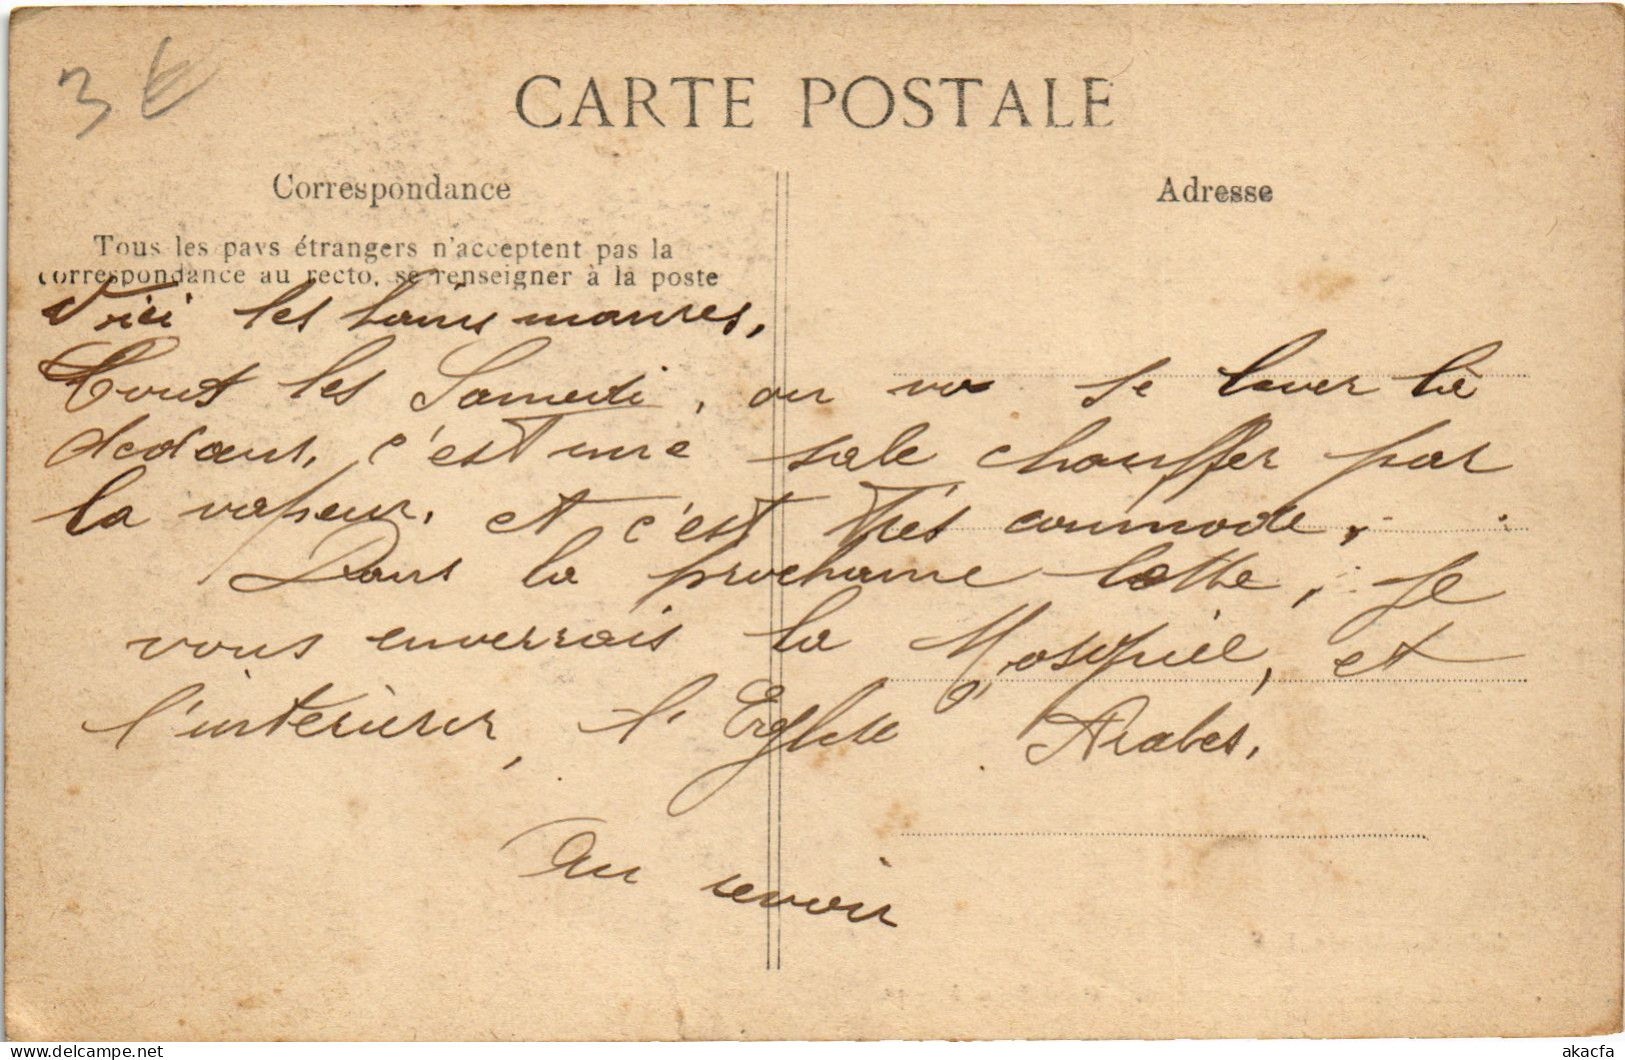 3 €
CARTE POSTALE
Correspondance
Adresse
Tous les pays étrangers n'acceptent pas la
correspondance au recto, se renseigner à la poste
Voici les bains maures,
Tout les Samedi, on va se laver là
dedans, c'est une sale chauffer par
la vapeur, et c'est très commode,
Dans la prochaine lettre, je
vous enverrais la Mosquée, et
l'intérieur, l'Eglise Arabes.
Au revoir
akacfa